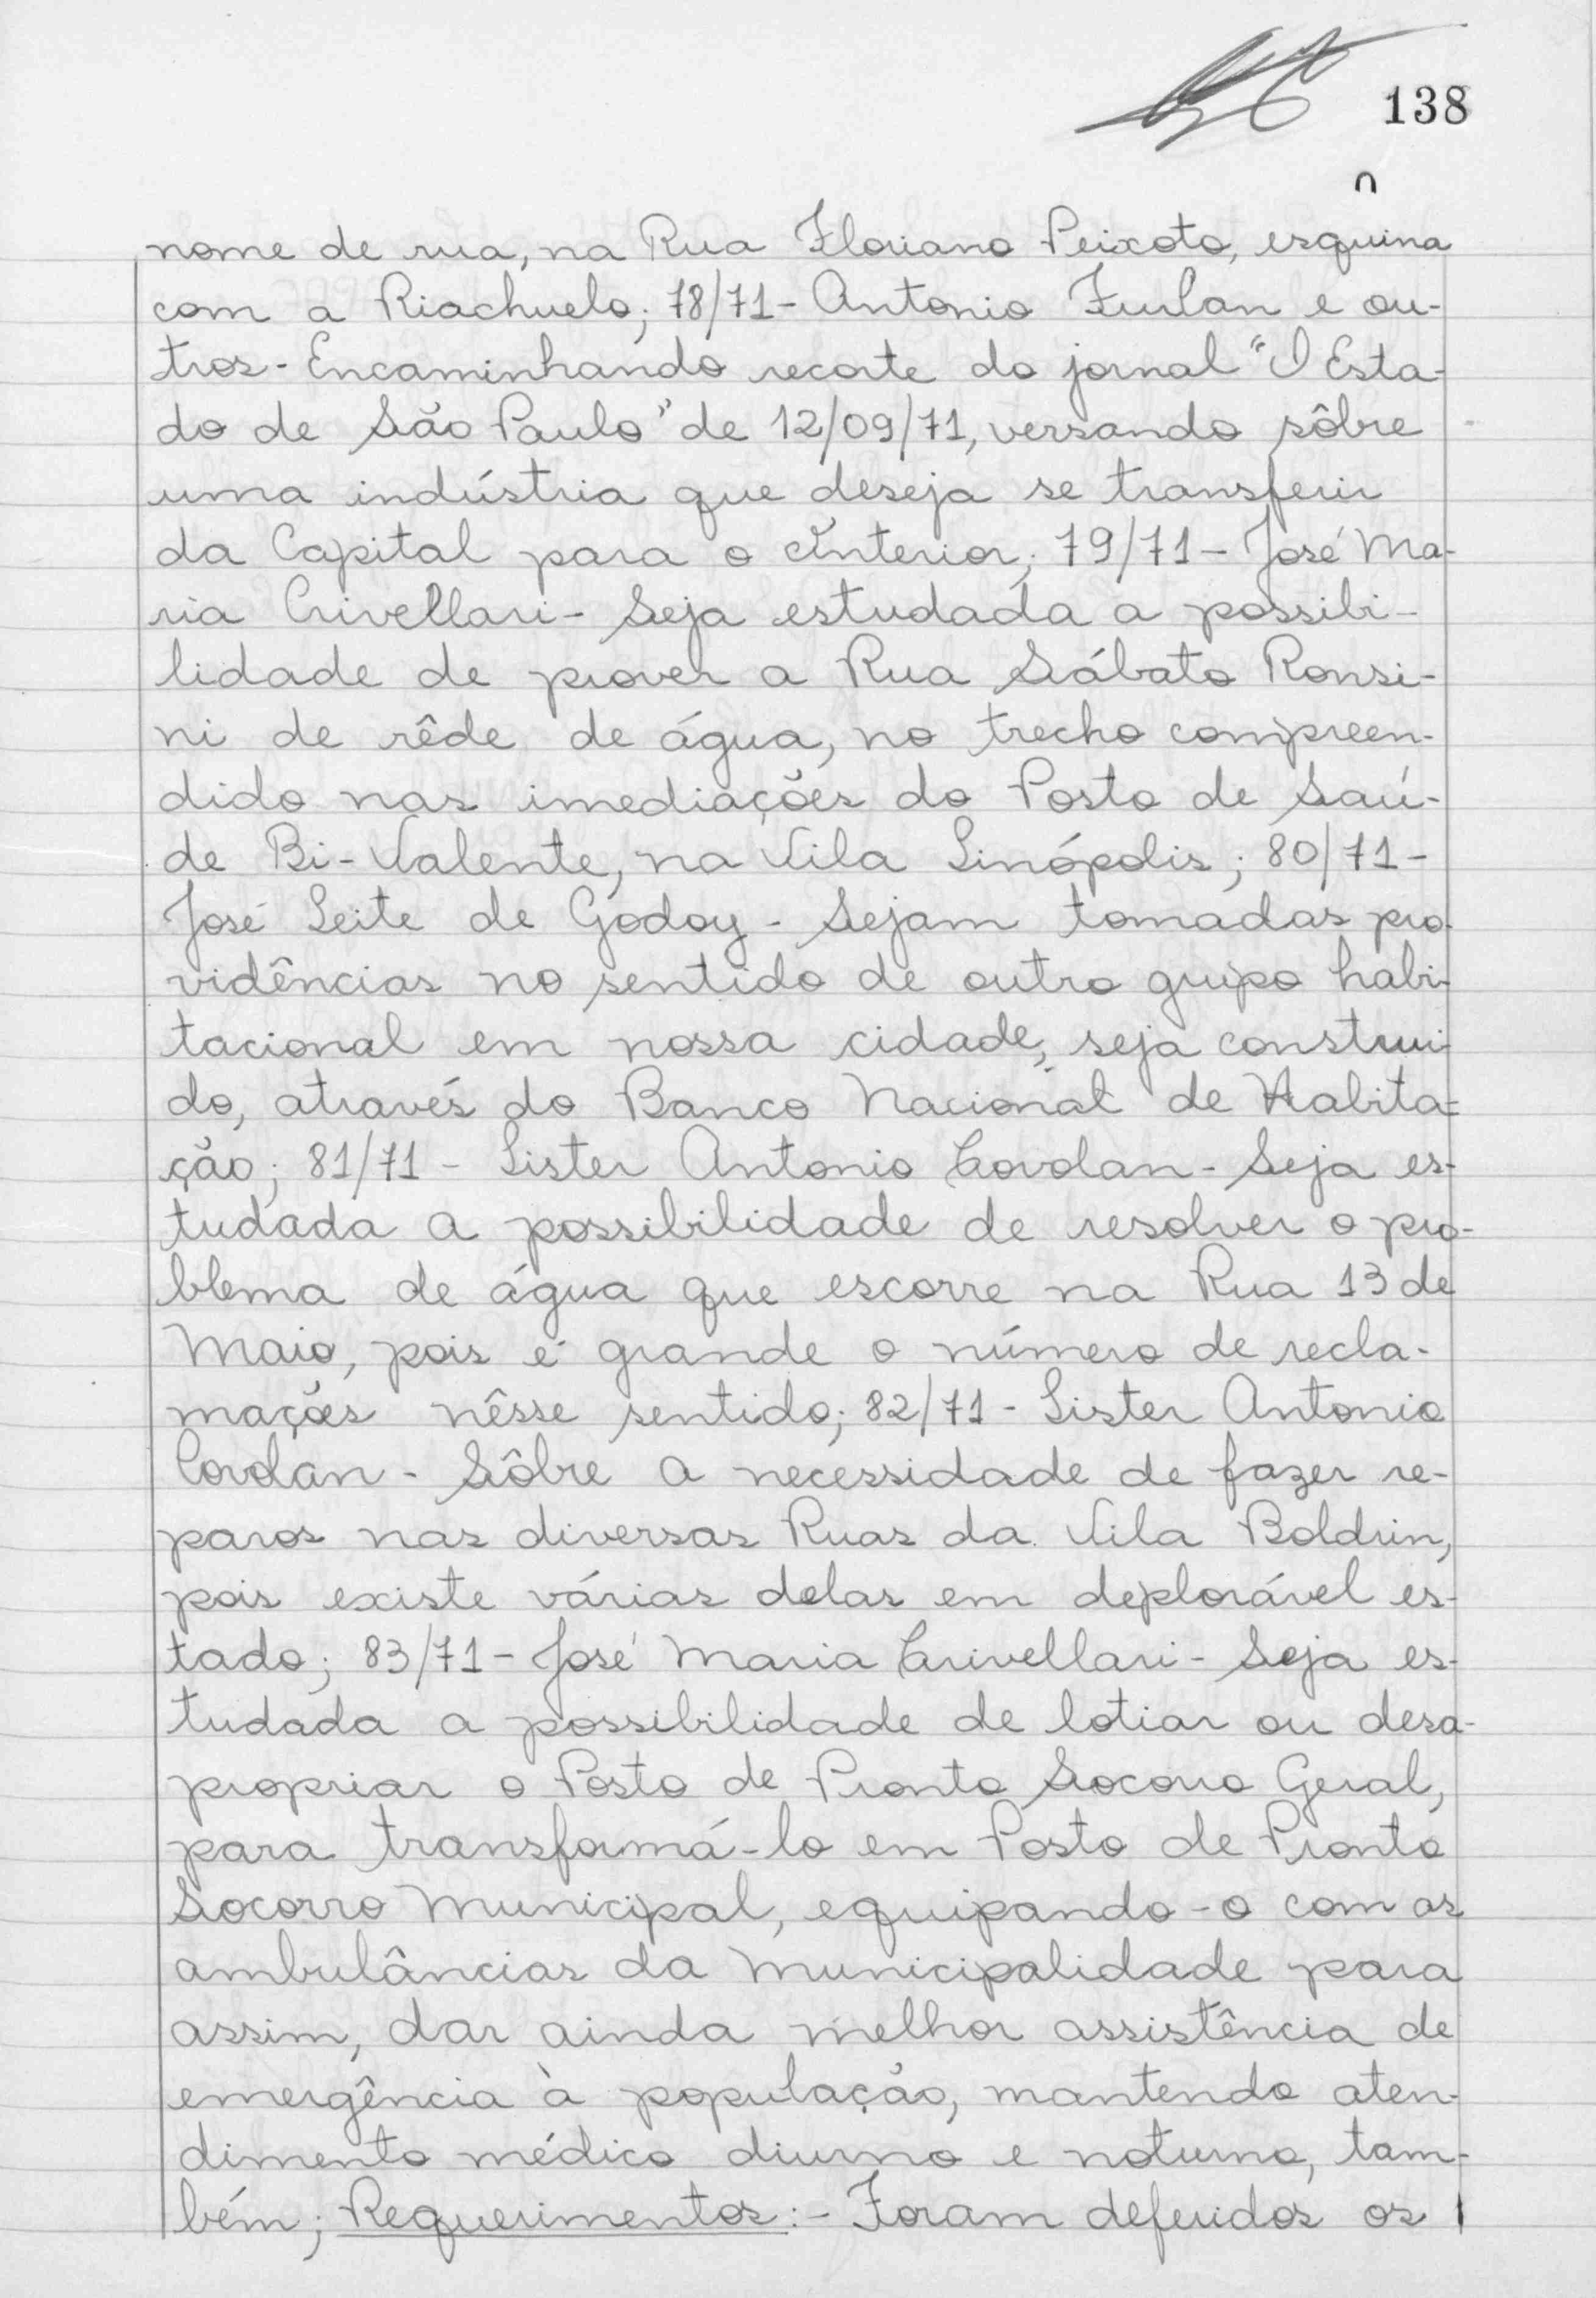 138
nome de rua, na Rua Floriano Peixoto, esquina
com a Riachuelo; 78/71 - Antonio Furlan e ou-
tros - Encaminhando recorte do jornal "O Esta-
do de São Paulo" de 12/09/71, versando sôbre
uma indústria que deseja se transferir
da Capital para o interior; 79/71 - José Ma-
ria Crivellari - Seja estudada a possibi-
lidade de prover a Rua Sábato Ronsi-
ni de rêde de água, no trecho compreen-
dido nas imediações do Posto de Saú-
de Bi-Valente, na Vila Linópolis; 80/71 -
José Leite de Godoy - Sejam tomadas pro-
vidências no sentido de outro grupo habi-
tacional em nossa cidade, seja construi-
do, através do Banco Nacional de Habita-
ção; 81/71 - Lister Antonio Covolan - Seja es-
tudada a possibilidade de resolver o pro-
blema de água que escorre na Rua 13 de
Maio, pois é grande o número de recla-
mações nêsse sentido; 82/71 - Lister Antonio
Covolan - Sôbre a necessidade de fazer re-
paros nas diversas Ruas da Vila Boldrin,
pois existe várias delas em deplorável es-
tado; 83/71 - José Maria Crivellari - Seja es-
tudada a possibilidade de lotiar ou desa-
propriar o Posto de Pronto Socorro Geral,
para transformá-lo em Posto de Pronto
Socorro Municipal, equipando-o com as
ambulâncias da Municipalidade para
assim, dar ainda melhor assistência de
emergência à população, mantendo aten-
dimento médico diurno e noturno, tam-
bém; Requerimentos: - Foram deferidos os